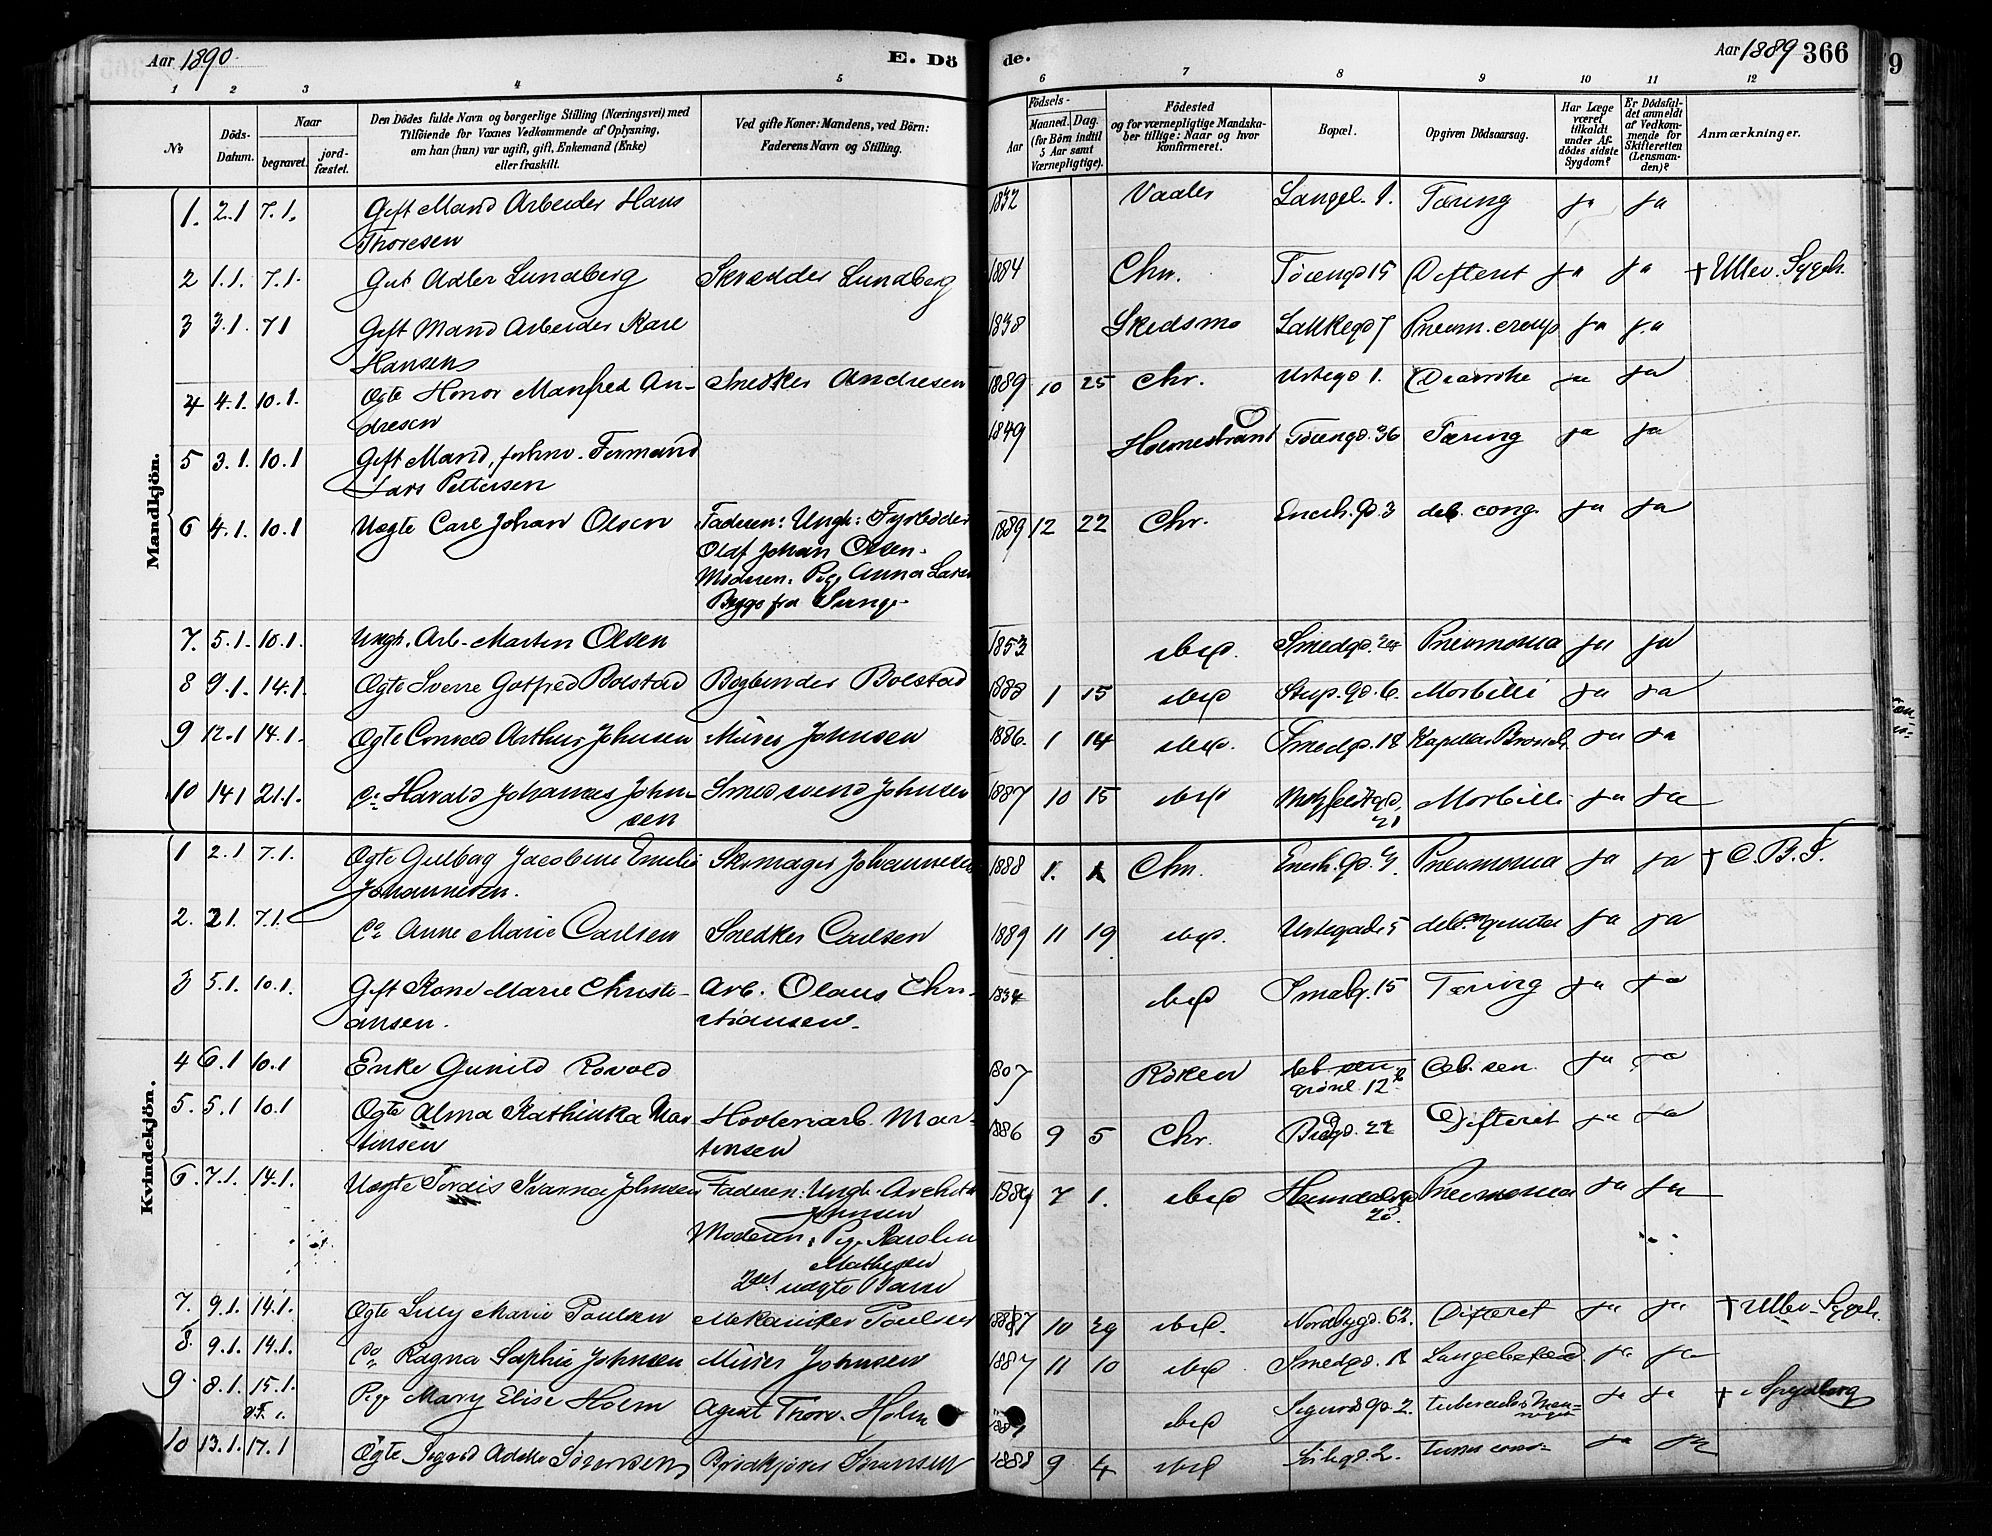 Aar 1890.
E. Dö
de.
Aar 1889 366
9
1 2 3 4 5 6 7 8 9 10 11 12
No
Döds-Datum.
Naar
begravet.
jord-fæstet.
Den Dödes fulde Navn og borgerlige Stilling (Næringsvei) med
Tilföiende for Voxnes Vedkommende af Oplysning,
om han (hun) var ugift, gift, Enkemand (Enke)
eller fraskilt.
Ved gifte Koner: Mandens, ved Börn:
Faderens Navn og Stilling.
Födsels-
Aar
Maaned. Dag.
(for Börn indtil
5 Aar samt
Værnepligtige).
Födested
og for værnepligtige Mandska-
ber tillige: Naar og hvor
konfirmeret.
Bopæl.
Opgiven Dödsaarsag.
Har Læge
været
tilkaldt
under Af-
dödes sidste
Sygdom?
Er Dödsfal-
det anmeldt
af Vedkom-
mende for
Skifteretten
(Lensman-
den)?
Anmærkninger.
Mandkjön.
1. 2.1 7.1. Gift Mand Arbeider Hans 1832 Vaaler Langel. 1. Tæring ja ja
Thoresen
2 1.1. 7.1. Gut Adler Lundberg Skrædder Lundberg 1884 Chr. Töiengd 15 Difterit ja ja † Ullev. Sygeh.
3 3.1. 7.1 Gift Mand Arbeider Karl 1838 Skedsmo Lakkegd 7 Pneum. croup ja ja
Hansen
4 4.1. 10.1. Ægte Honor Manfred An- Snedker Andresen 1889 10 25 Chr. Urtegd 1. Diarrhe ja ja
dresen
5 3.1. 10.1 Gift Mand, forhnv. Formand 1849 Holmestrand Töiengd. 36 Tæring ja ja
Lars Pettersen
6 4.1. 10.1 Uægte Carl Johan Olsen Faderen: Ungk: Fyrböder 1889 12 22 Chr. Enerh. gd. 3 deb. cong. ja ja
Olaf Johan Olsen.
Moderen: Pige Anna
fra
7. 5.1. 10.1. Ungk. Arb. Martin Olsen 1853 ibid. Smedgd. Pneumonia ja ja
8 9.1. 14.1 Ægte Sverre Gotfred Bolstad Bogbinder Bolstad 1888 1 15 ibid Stup. gd. 6. Morbilli ja ja
9 12.1 14.1. Ægte Conrad Arthur Johnsen Murer Johnsen 1886. 1 14 ibid. Smedgd. 18 Kapillær Bronch. ja ja
10 14.1 21.1. Do Harald Johannes John- Smedsvend Johnsen 1887 10 15 ibid Motzfeldtgd. Morbilli ja ja
sen 21
Kvindekjön.
1 2.1 7.1. Ægte Gulbog Jacobine Emilie Skomager Johannesen 1888 1. 1 Chr. Enerh. gd. 9. Pneumonia ja ja † C. B. S.
Johannesen.
2. 2.1. 7.1. Do Anne Marie Carlsen Snedker Carlsen 1889 11 19 ibid. Urtegade 5 deb. ja ja
3 5.1. 10.1. Gift Kone Marie Christi- Arb. Olaus Chri- 1834 ibid Smalg. 15 Tæring ja ja
ansen. stiansen.
4 6.1 10.1 Enke Gunild Rovold 1807 Röken Grönl. 12 Deb. sen. ja ja
5. 5.1 10.1 Ægte Alma Kathinka Mar- Hovlenarb. Mar- 1886 9 5 Chr. 22 Difterit ja ja
tinsen tinsen
6. 7.1. 14.1. Uægte Tordis Johnsen Faderen: Ungk. 1889 7 1. ibid Heimdalsgd Pneumonia ja ja
Johnsen 20.
Moderen: Pige Karolin
Mathisen
2det uægte Barn
7. 9.1. 14.1. Ægte Lilly Marie Paulsen Mekaniker Paulsen 1887 10 29 ibid. Nordbygd. 62. Difterit ja ja † Ullev. Sygeh.
8. 9.1. 14.1. Do Ragna Sophie Johnsen Murer Johnsen 1887 11 10 ibid Smedgd. 18 ja ja
9. 8.1. 15.1. Pige Mary Elise Holm Agent Thorv. Holm ibid Sigurds gd. 2. ja ja † i Spydberg
10 13.1. 17.1 Ægte Sigrid Adele Sörensen Brödkjörer Sörensen 1888 9 4 ibid gd. 2. Tussis conv. ja ja